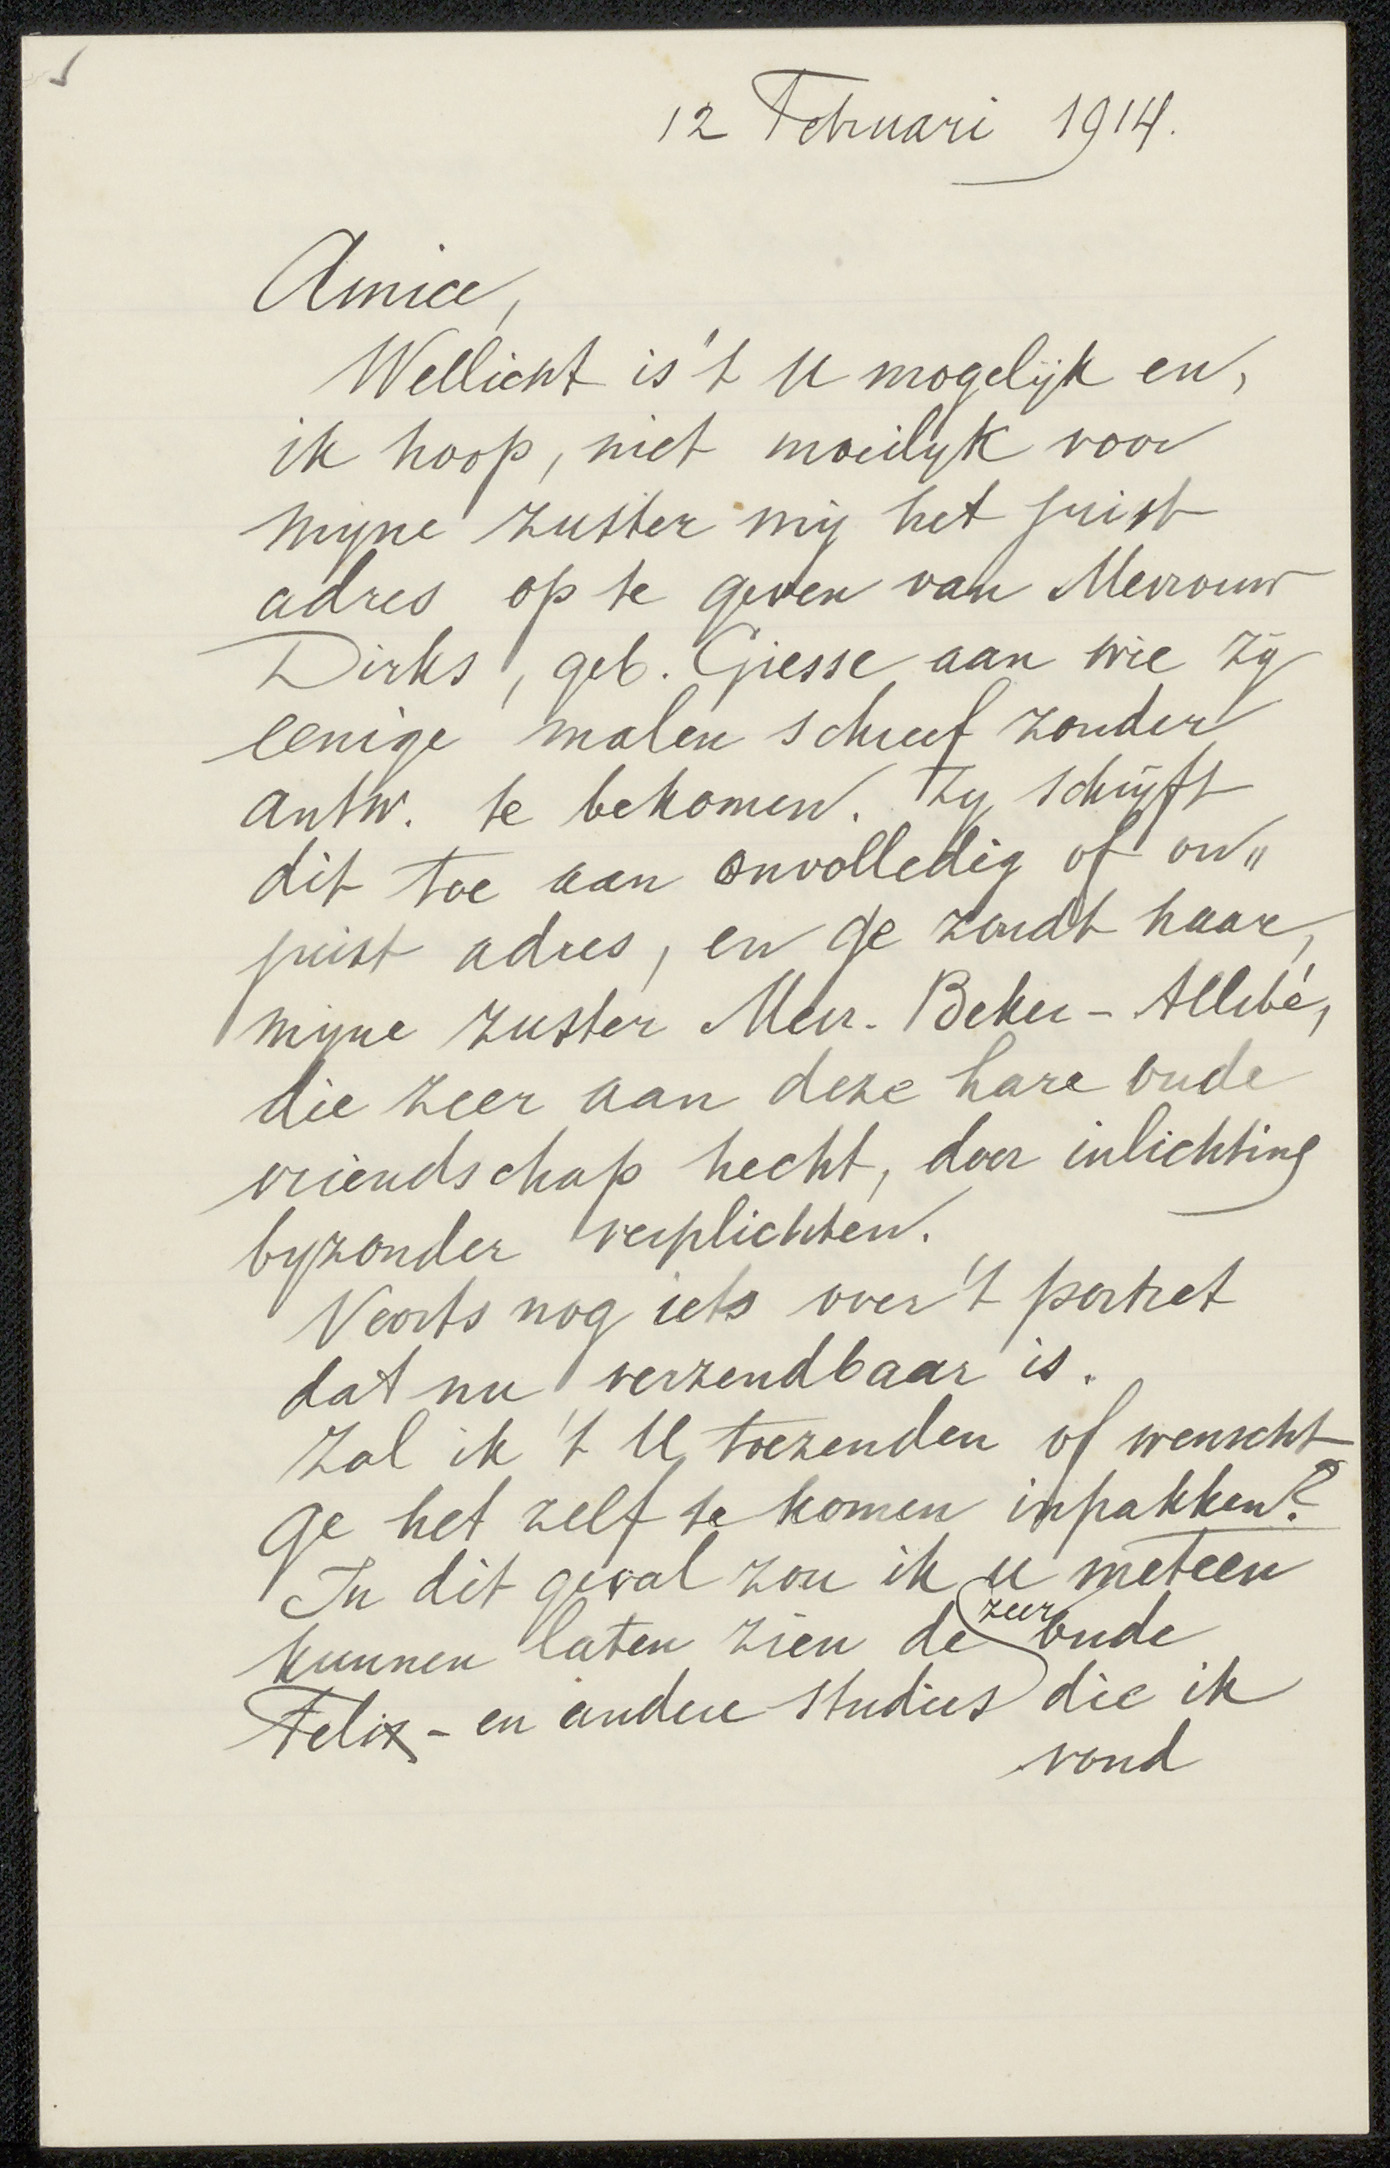 12 Februari 1914.
Amice,
Wellicht is 't U mogelijk en,
ik hoop, niet moeilyk voor
myne zuster mij het juist
adres op te geven van Mevrouw
Dirks, geb. Giesse aan wie zij
eenige malen schreef zonder
antw. te bekomen. Zy schrijft
dit toe aan onvolledig of on„
juist adres, en ge zoudt haar,
myne zuster Mevr. Beker - Allebé,
die zeer aan deze hare oude
vriendschap hecht, door inlichting
byzonder verplichten.
Voorts nog iets over 't portret
dat nu verzendbaar is.
Zal ik 't U toezenden of wenscht
ge het zelf te komen inpakken?
In dit geval zou ik u meteen
kunnen laten zien de zeer oude
Felix - en andere studies die ik
vond